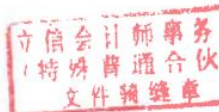 立信会计师事务
(特殊普通合伙
文件骑缝章